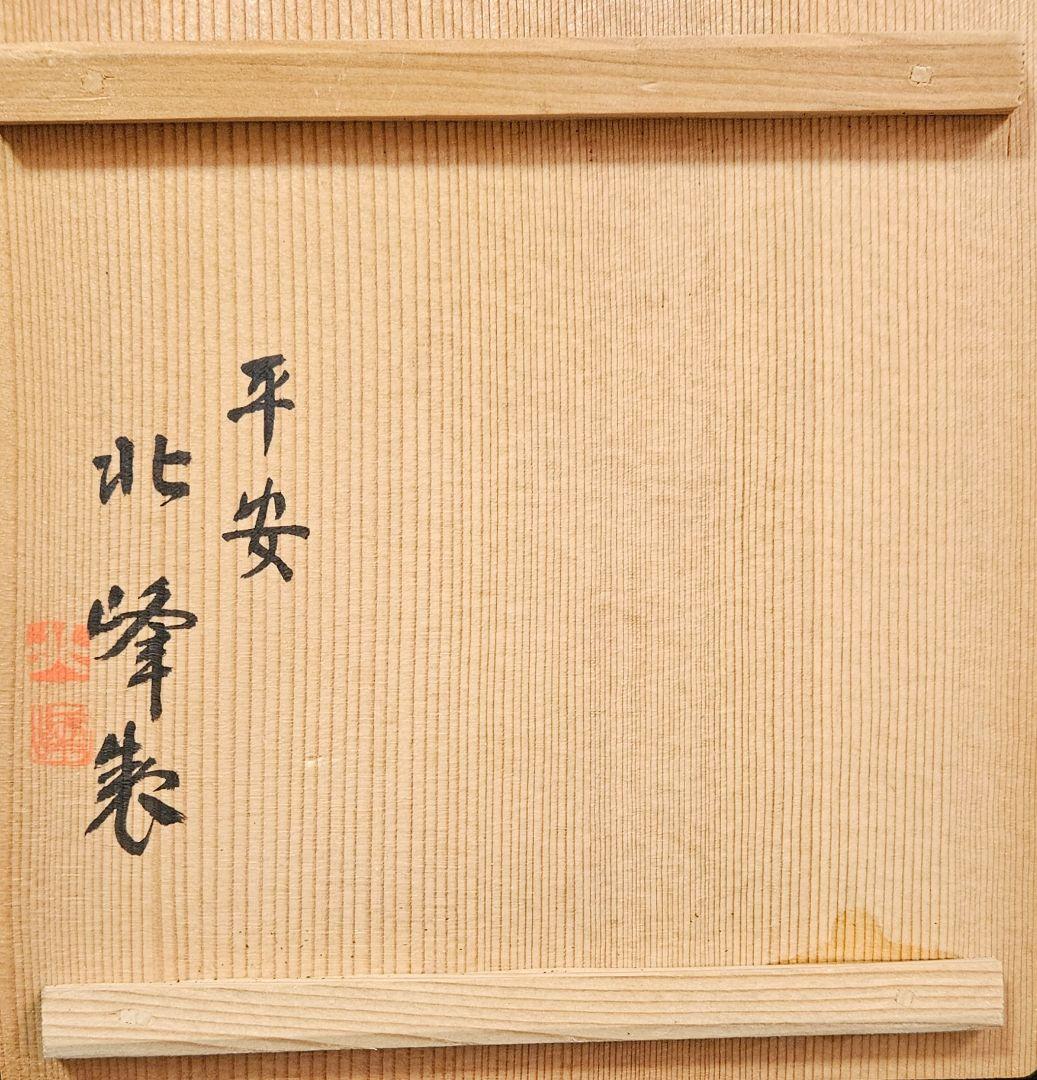 平安
北峰製